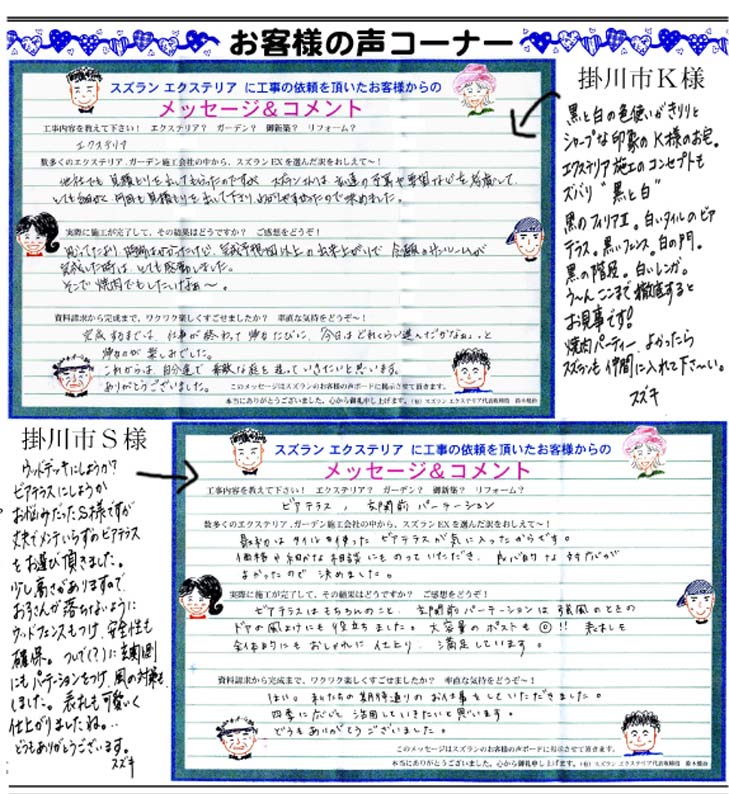 お客様の声コーナー
スズラン エクステリア に工事の依頼を頂いたお客様からの
メッセージ&コメント
工事内容を教えて下さい! エクステリア? ガーデン? 御新築? リフォーム?
エクステリア
数多くのエクステリア.ガーデン施工会社の中から、スズランEXを選んだ訳をおしえて〜!
他社でも見積もりを出してもらったのですが、スズランさんは
とても細かく 何回も見積もりを出して下さり 決めました。
実際に施工が完了して、その結果はどうですか? ご感想をどうぞ!
思ってたより 時間はかかったけど、完成予想図以上の出来上がりで
完成した時は とても感動しました。
そこで焼肉でもしたいなぁ〜。
資料請求から完成まで、ワクワク楽しくすごせましたか? 率直な気持をどうぞ!
完成するまでは、仕事が終わって帰るたびに、今日はどれくらい進んだかなぁ。と
帰るのが楽しみでした。
これからは、自分達で素敵な庭を造っていきたいと思います。
ありがとうございました。
このメッセージはスズランのお客様の声ボードに掲示させて頂きます。
本当にありがとうございました。心から御礼申し上げます。(有)スズラン エクステリア代表取締役
掛川市K様
黒と白の色使いがきりりと
シャープな印象のK様のお宅。
エクステリア施工のコンセプトも
ズバリ"黒と白"
黒のフィリア II。白いタイルのピア
テラス。黒いフェンス。白の門。
黒の階段。白いレンガ。
う〜ん ここまで徹底すると
お見事です!
焼肉パーティー よかったら
スズランも仲間に入れて下さ〜い。
スズキ
掛川市S様
ウッドデッキにしようか?
ピアテラスにしようか
お悩みだったS様ですが
丈夫でメンテいらずのピアテラス
をお選び頂きました。
少し高さがありますので、
お子さんが落ちないように
ウッドフェンスもつけ、安全性も
確保。ついで(?)に玄関側
にもパーテションもつけ、風の対策も
しました。表札も可愛く
仕上がりましたね。..
どうもありがとうございます。
スズキ
スズラン エクステリア に工事の依頼を頂いたお客様からの
メッセージ&コメント
工事内容を教えて下さい! エクステリア? ガーデン? 御新築? リフォーム?
ピアテラス, 玄関前パーテーション
数多くのエクステリア.ガーデン施工会社の中から、スズランEXを選んだ訳をおしえて〜!
最初はタイルを使ったピアテラスが気に入ったからです。
価格や細かな相談にものっていただき、良心的な対応が
よかったので決めました。
実際に施工が完了して、その結果はどうですか? ご感想をどうぞ!
ピアテラスはもちろんのこと、玄関前パーテーションは強風のときの
ドアの風よけにも役立ちました。大容量のポストも◎!! 表札も
全体的にもおしゃれに仕上り、満足しています。
資料請求から完成まで、ワクワク楽しくすごせましたか? 率直な気持をどうぞ!
はい。私たちの期待通りのお仕事をしていただきました。
四季に応じて活用していきたいと思います。
どうもありがとうございました。
このメッセージはスズランのお客様の声ボードに掲示させて頂きます。
本当にありがとうございました。心から御礼申し上げます。(有)スズラン エクステリア代表取締役